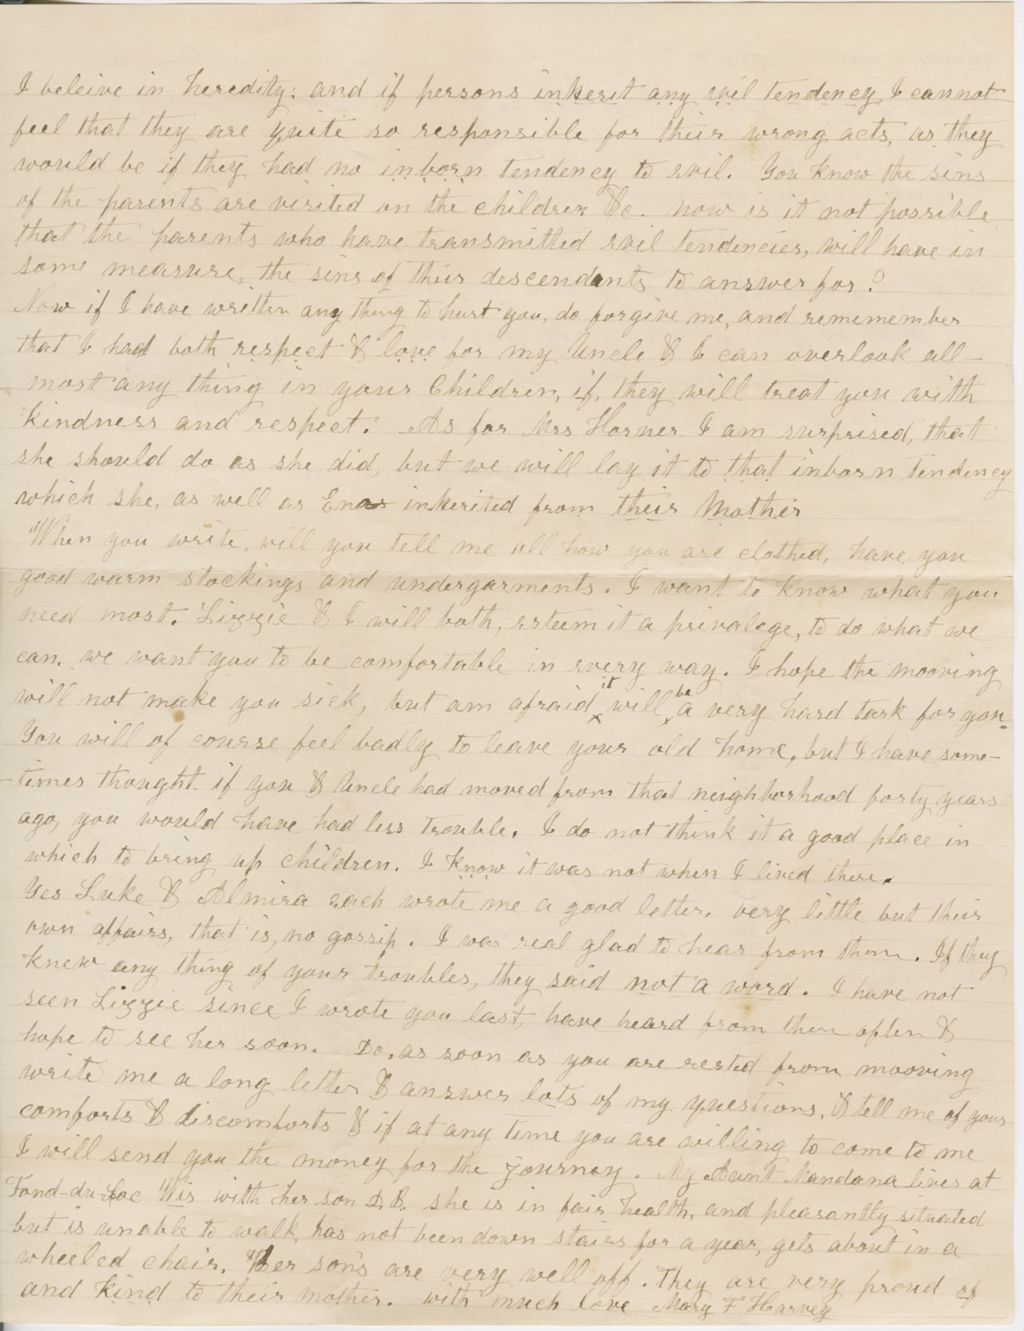 I beleive in heredity; and if persons inherit any evil tendency, I cannot
feel that they are quite so responsible for their wrong acts, as they
would be if they had no inborn tendency to evil. You know the sins
of the parents are visited on the children &c. now is it not possible
that the parents who have transmitted evil tendencies, will have in
some measure, the sins of their descendants to answer for?
Now if I have written any thing to hurt you, do forgive me, and rememember
that I had both respect & love for my Uncle & I can overlook all-
most any thing in your Children, if, they will treat you with
kindness and respect. As for Mrs Horner I am surprised, that
she should do as she did, but we will lay it to that inborn tendency
which she, as well as Enos inherited from their Mother
When you write, will you tell me all how you are clothed, have you
good warm stockings and undergarments. I want to know what you
need most. Lizzie & I will both, esteem it a privalege, to do what we
can. we want you to be comfortable in every way. I hope the mooving
will not make you sick, but am afraid it will be a very hard task for you.
You will of course feel badly to leave your old home, but I have some-
times thought if you & Uncle had moved from that neighborhood forty years
ago, you would have had less trouble. I do not think it a good place in
which to bring up children. I know it was not when I lived there.
Yes Luke & Almira each wrote me a good letter. very little but their
own affairs, that is, no gossip. I was real glad to hear from them. If they
knew any thing of your troubles, they said not a word. I have not
seen Lizzie since I wrote you last, have heard from them often &
hope to see her soon. Do, as soon as you are rested from mooving
write me a long letter & answer lots of my questions, & tell me of your
comforts & discomforts & if at any time you are willing to come to me
I will send you the money for the journey. My Aunt Mandana lives at
Fond-du-Lac Wis with her son D.B. she is in fair health, and pleasantly situated
but is unable to walk has not been down stairs for a year, gets about in a
wheeled chair. Her sons are very well off. They are very proud of
and kind to their mother. with much love Mary F Harvey